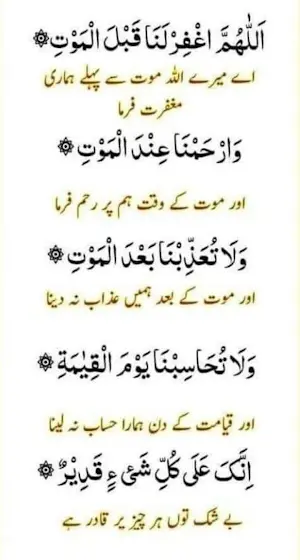 اَللّٰهُمَّ اغْفِرْ لَنَا قَبْلَ الْمَوْتِ ۞
اے میرے اللہ موت سے پہلے ہماری
مغفرت فرما
وَارْحَمْنَا عِنْدَ الْمَوْتِ ۞
اور موت کے وقت ہم پر رحم فرما
وَلَا تُعَذِّبْنَا بَعْدَ الْمَوْتِ ۞
اور موت کے بعد ہمیں عذاب نہ دینا
وَلَا تُحَاسِبْنَا يَوْمَ الْقِيٰمَةِ ۞
اور قیامت کے دن ہمارا حساب نہ لینا
اِنَّکَ عَلٰی کُلِّ شَیْءٍ قَدِيْرٌ ۞
بے شک توں ہر چیز پر قادر ہے